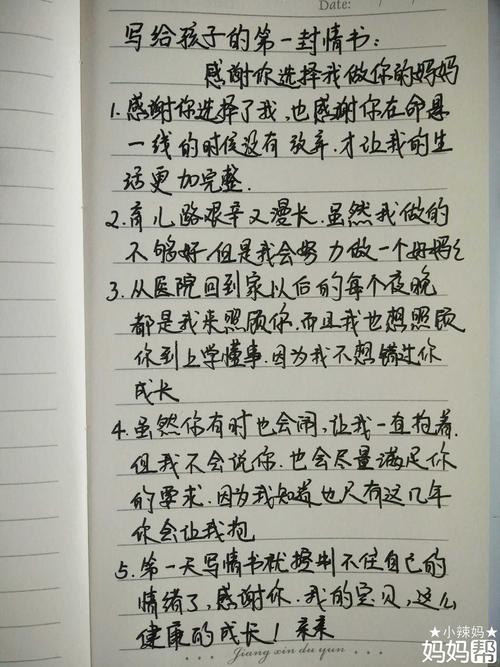 Date:
写给孩子的第一封情书:
感谢你选择我做你的妈妈
1.感谢你选择了我,也感谢你在命悬
一线的时候没有放弃.才让我的生
活更加完整.
2.育儿路艰辛又漫长.虽然我做的
不够好,但是我会努力做一个好妈妈
3.从医院回到家以后的每个夜晚
都是我来照顾你.而且我也想照顾
你到上学懂事.因为我不想错过你
成长
4.虽然你有时也会闹,让我一直抱着.
但我不会说你.也会尽量满足你
的要求.因为我知道也只有这几年
你会让我抱
5.第一天写情书就控制不住自己的
情绪了,感谢你.我的宝贝,这么
健康的成长!亲亲
... Jiang xin du yun ...
★小辣妈★
妈妈帮